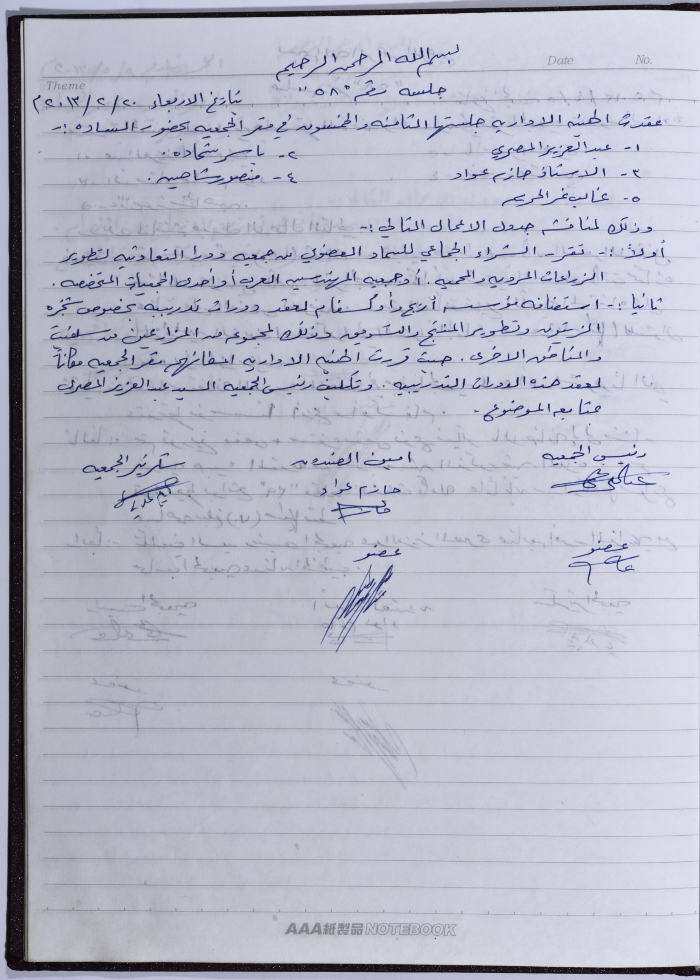 بسم الله الرحمن الرحيم
Date No.
Theme
جلسه رقم "٥٨" بتاريخ الاربعاء ٢٠/٢/٢٠١٣م
عقدت الهيئه الاداريه جلستها الثامنه والخمسون في مقر الجمعيه بحضور الساده :-
١- عبد العزيز المصري ٢- ياسر شحاده .
٣- الاستاذ حازم عواد ٤- منصور شاهين .
٥- غالب غر الحريم
وذلك لمناقشه جدول الاعمال التالي :-
أولاً :- تقرر الشراء الجماعي للسماد العضوي من جمعيه دورا التعاونيه لتطوير
الزراعات المرويه والمحميه . أو جمعيه المهندسين العرب أو أحدى الجمعيات المختصه .
ثانيا :- استضافه مؤسسه أريج وأوكسفام لعقد دورات تدريبيه بخصوص شجره
الزيتون وتطوير المنتج والتسويق وذلك لمجموعه من المزارعين من سلفيت
والمناطق الاخرى . حيث قررت الهيئه الاداريه اعطائهم مقر الجمعيه مكاناً
لعقد هذه الدورات التدريبيه . وتكليف رئيس الجمعيه السيد عبد العزيز المصري
متابعه الموضوع .
رئيس الجمعيه امين الصندوق سكرتير الجمعيه
حازم عواد
عضو عضو
AAA紙製品NOTEBOOK